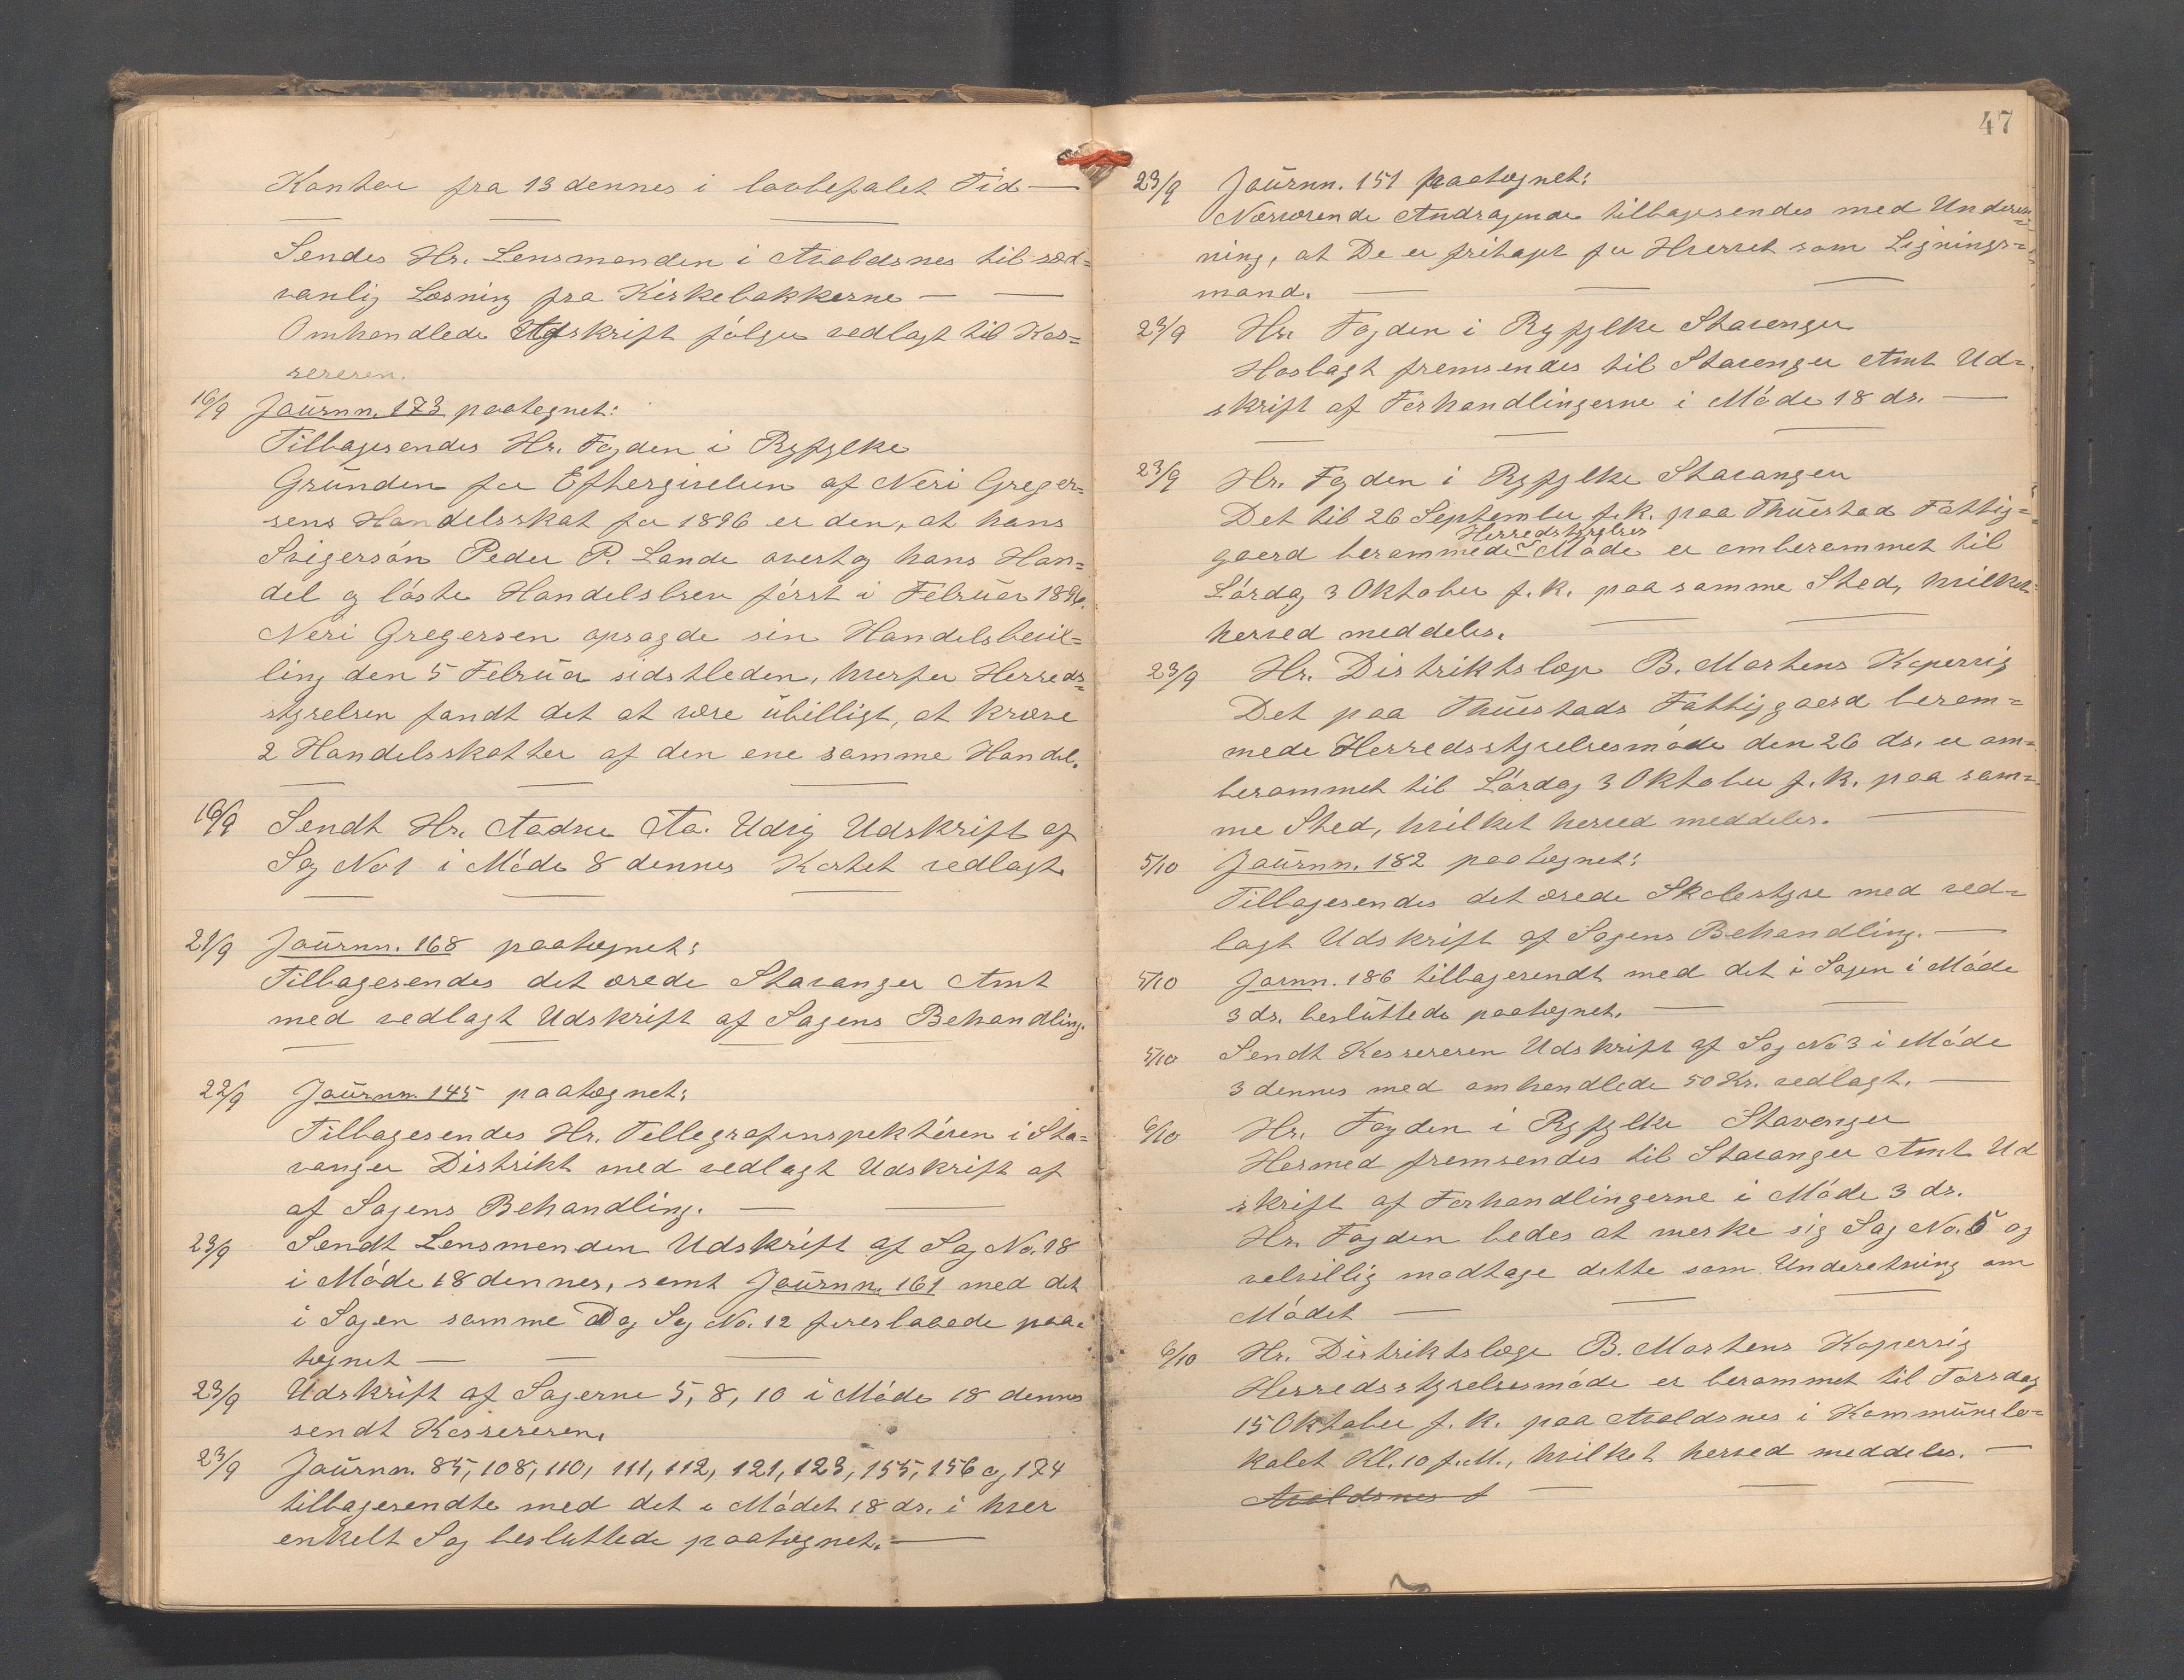 Kontor fra 13 dennes i lovbefalet Tid —
Sendes Hr. Lensmanden i Avaldsnes til sæd=
vanlig Læsning fra Kirkebakkerne —
Omhandlede Udskrift følger vedlagt til Kas=
sereren.
16/9 Journn. 173 paategnet:
Tilbagesendes Hr. Fogden i Ryfylke
Grunden for Eftergivelsen af Neri Greger=
sens Handelsskat for 1896 er den, at hans
Svigersøn Peder P. Lande overtog hans Han=
del og løste Handelsbrev først i Februar 1896.
Neri Gregersen opsagde sin Handelsbevil=
ling den 5 Februar sidstleden, hvorfor Herreds=
styrelsen fandt det at være ubilligt, at kræve
2 Handelsskatter af den ene samme Handel.
16/9 Sendt Hr. Aadne Aa. Udvig Udskrift af
Sag No 1 i Møde 8 dennes Kartet vedlagt.
21/9 Journn. 168 paategnet:
Tilbagesendes det ærede Stavanger Amt
med vedlagt Udskrift af Sagens Behandling.
22/9 Journn. 145 paategnet:
Tilbagesendes Hr. Tellegrafinspektøren i Sta=
vanger Distrikt med vedlagt Udskrift af
af Sagens Behandling. —
23/9 Sendt Lensmanden Udskrift af Sag No. 18
i Møde 18 dennes, samt Journn. 161 med det
i Sagen samme Dag Sag No. 12 foreslaaede paa=
tegnet —
23/9 Udskrift af Sagerne 5, 8, 10 i Møde 18 dennes
sendt Kassereren.
23/9 Journn. 85, 108, 110, 111, 112, 121, 123, 155, 156 og 174
tilbagesendte med det i Mødet 18 ds. i hver
enkelt Sag besluttede paategnet. —
47
23/9 Journn. 151 paategnet:
Nærværende Andragende tilbagesendes med Underret=
ning, at De er fritaget for Hvervet som Lignings=
mand. —
23/9 Hr. Fogden i Ryfylke Stavanger
Hoslagt fremsendes til Stavanger Amt Ud=
skrift af Forhandlingerne i Møde 18 ds. —
23/9 Hr. Fogden i Ryfylke Stavanger
Det til 26 September f.k. paa Thuestad Fattig=
Herredstyrelses
gaard berammede Møde er omberammet til
Lørdag 3 Oktober f.k. paa samme Sted, hvilket
herved meddeles.
23/9 Hr. Distriktslæge B. Martens Kopervig
Det paa Thuestads Fattiggaard beram=
mede Herredsstyrelsesmøde den 26 ds. er om=
berammet til Lørdag 3 Oktober f.k. paa sam=
me Sted, hvilket herved meddeles.
5/10 Journn. 182 paategnet:
Tilbagesendes det ærede Skolestyre med ved=
lagt Udskrift af Sagens Behandling. —
5/10 Jornn. 186 tilbagesendt med det i Sagen i Møde
3 ds. besluttede paategnet. —
5/10 Sendt Kassereren Udskrift af Sag No 3 i Møde
3 dennes med omhandlede 50 Kr. vedlagt. —
6/10 Hr. Fogden i Ryfylke Stavanger
Hermed fremsendes til Stavanger Amt Ud
skrift af Forhandlingerne i Møde 3 ds.
Hr. Fogden bedes at merke sig Sag No. 5 og
velvillig modtage dette som Underetning om
Mødet —
6/10 Hr. Distriktslæge B. Martens Kopervig
Herredsstyrelsesmøde er berammet til Torsdag
15 Oktober f.k. paa Avaldsnes i Kommunelo=
kalet Kl. 10 f.M., hvilket herved meddeles. —
Avaldsnes d